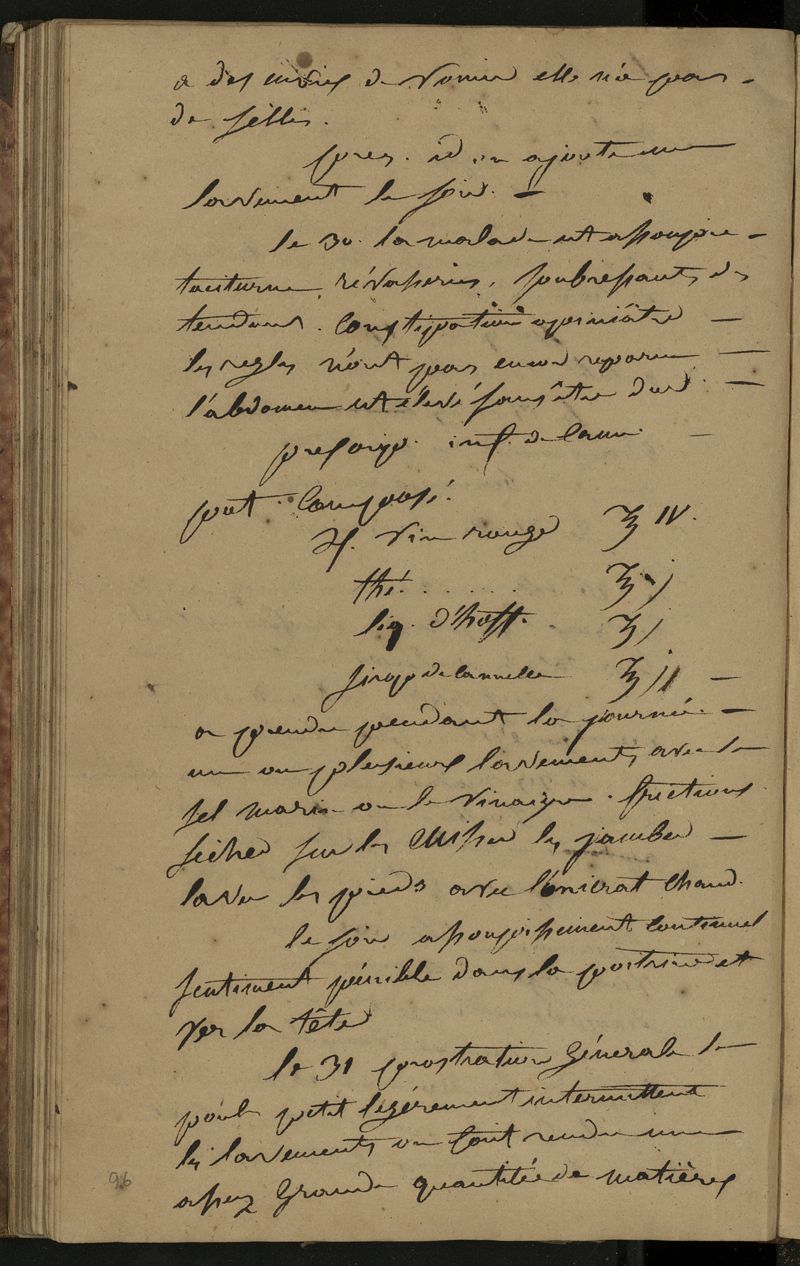 a des envies de vomir elle n'a pas
de selles.
pres. id. on ajoute un
lavement le soir. —
le 30. la malade est assoupie —
taciturne, révasseries, soubresauts des
tendons. constipation opiniâtre —
les regles n'ont pas encor reparu —
l'abdomen est élevé sans être dur. —
prescrip. inf. de cam. —
pot. composé.
℞. Vin rouge ℥ IV.
thé . . . . . . ℥ j
liq. d'hoff. ℥ j
sirop de cannelle ℥ jj —
a prendre pendant la journée. —
un ou plusieurs lavements avec le
sel marin ou le vinaigre. frictions
seches sur les cuisses les jambes —
laver les pieds avec l'oxicrat chaud.
le soir assoupissement continuel
sentiment pénible dans la poitrine et
ver la tête
le 31 prostration générale le
pouls petit legérement intermittent
les lavements on fait rendre une
assez grande quantitée de matières
96